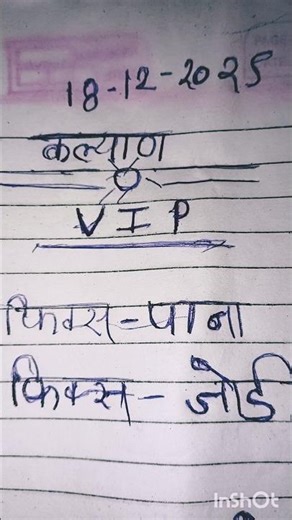 18-12-2025
कल्याण
VIP
फिक्स - पाना
फिक्स - जोड
InShOt